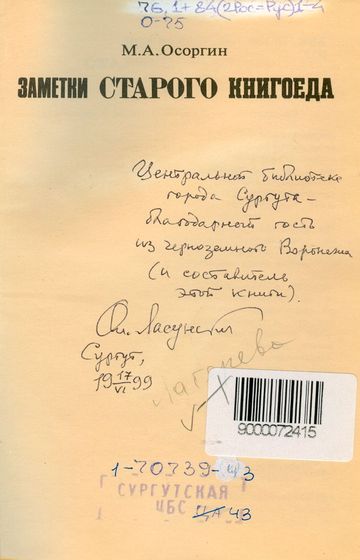 76.1+84(2Рос=Рус)1-4
О-75
М.А.Осоргин
ЗАМЕТКИ СТАРОГО КНИГОЕДА
Центральной библиотеке
города Сургута –
благодарный гость
из черноземного Воронежа
(и составитель
этой книги).
Ол. Ласунский
Сургут,
19 17/VI 99
Лагерево
9000072415
1-70739-43
Г СУРГУТСКАЯ
ЦБС ЦА 43